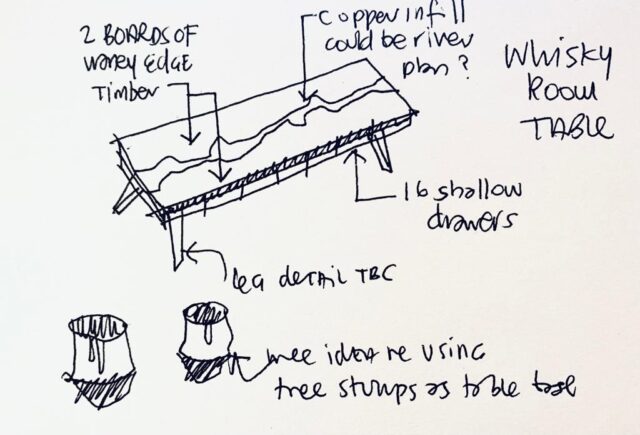 copper infill
could be river
plan?
2 BOARDS OF
waney EDGE
TIMBER
Whisky
Room
TABLE
16 shallow
drawers
leg DETAIL TBC
wee idea re using
tree stumps as table